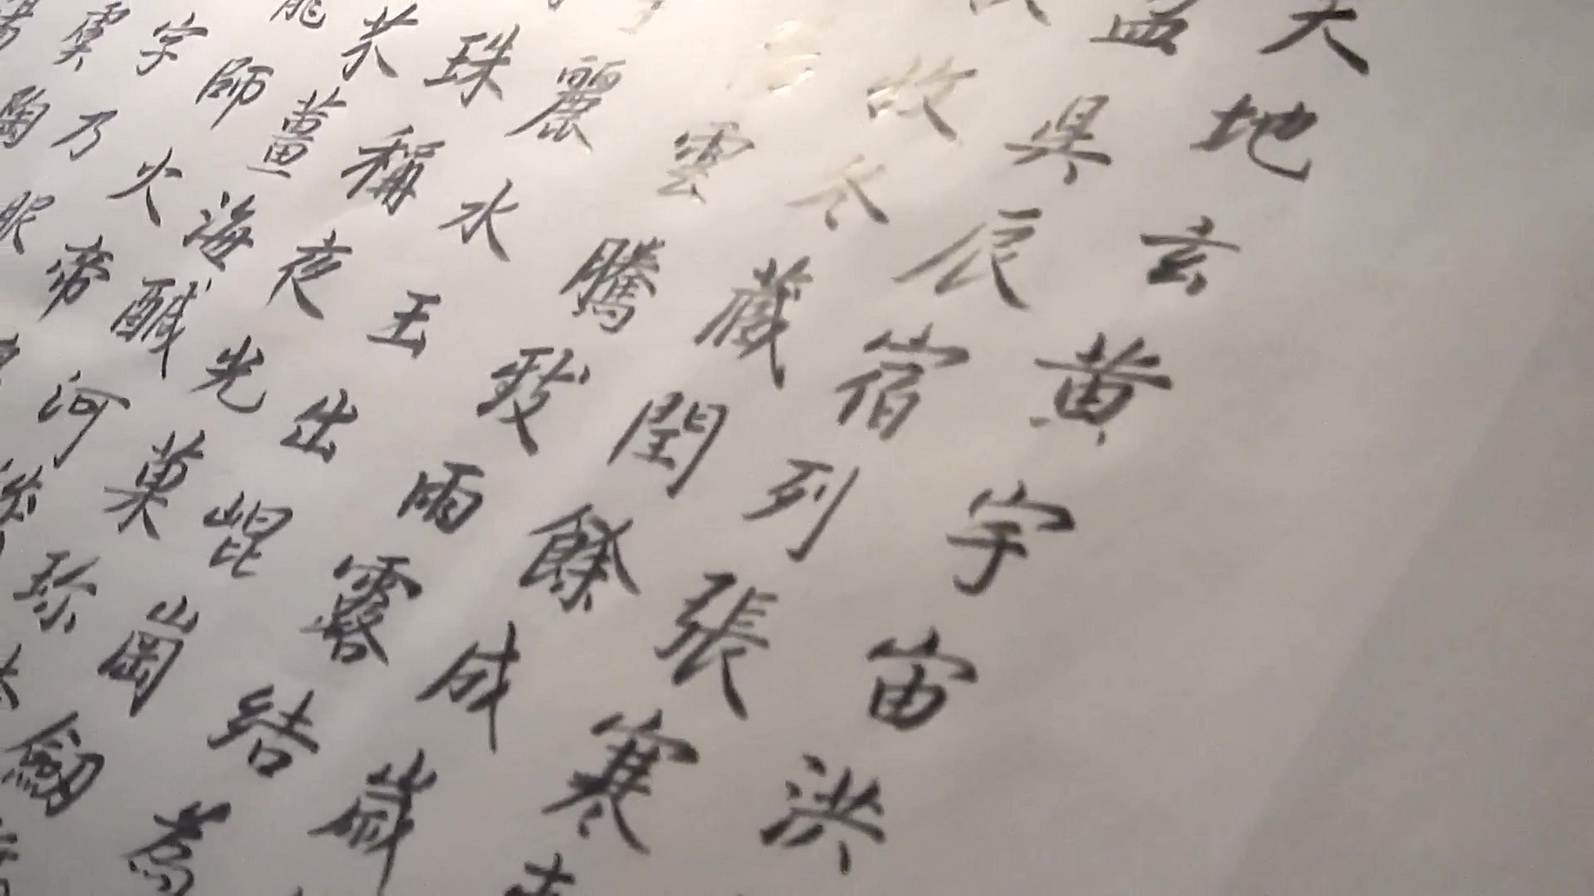 天地玄黄宇宙洪
盈昃辰宿列張寒
收冬藏閏餘成歲
雲騰致雨露結為
麗水玉出崐崗劒
珠稱夜光菓珍
芥薑海醎河
師火帝
字乃服
虞陶